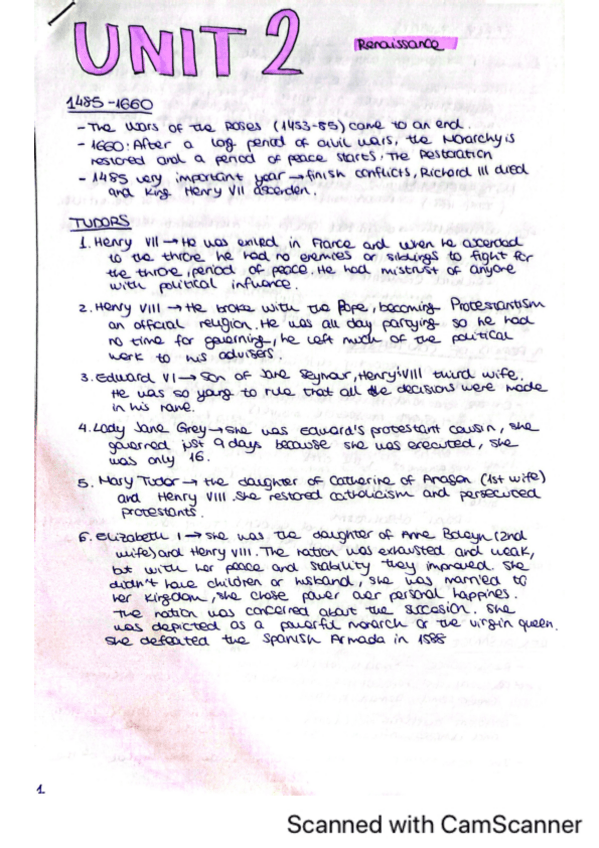 UNIT 2
Renaissance
1485-1660
- The wars of the Roses (1453-85) came to an end.
- 1660: After a log period of civil wars, the Monarchy is
restored and a period of peace starts, The Restoration
- 1485 very important year → finish conflicts, Richard III died
and King Henry VII ascenden.
TUDORS
1. Henry VII → He was exiled in France and when he ascended
to the throne he had no enemies or siblings to fight for
the throne, period of peace. He had mistrust of anyone
with political influence.
2. Henry VIII → He broke with the Pope, becoming Protestantism
an official religion. He was all day partying so he had
no time for governing, he left much of the political
work to his advisers.
3. Edward VI → Son of Jane Seymour, Henry'sVIII third wife.
He was so yong to rule that all the decisions were made
in his name.
4. Lady Jane Grey → she was Edward's protestant cousin, she
governed just 9 days because she was executed, she
was only 16.
5. Mary Tudor → the daughter of Catherine of Aragon (1st wife)
and Henry VIII. She restored catholicism and persecuted
protestants.
6. Elizabeth I → she was the daughter of Anne Boleyn (2nd
wife) and Henry VIII. The nation was exhausted and weak,
but with her peace and stability they improved. She
didn't have children or husband, she was married to
her kingdom, she chose power over personal happines.
The nation was concerned about the succesion. She
was depicted as a powerful monarch or the virgin queen.
She defeated the Spanish Armada in 1588
1.
Scanned with CamScanner